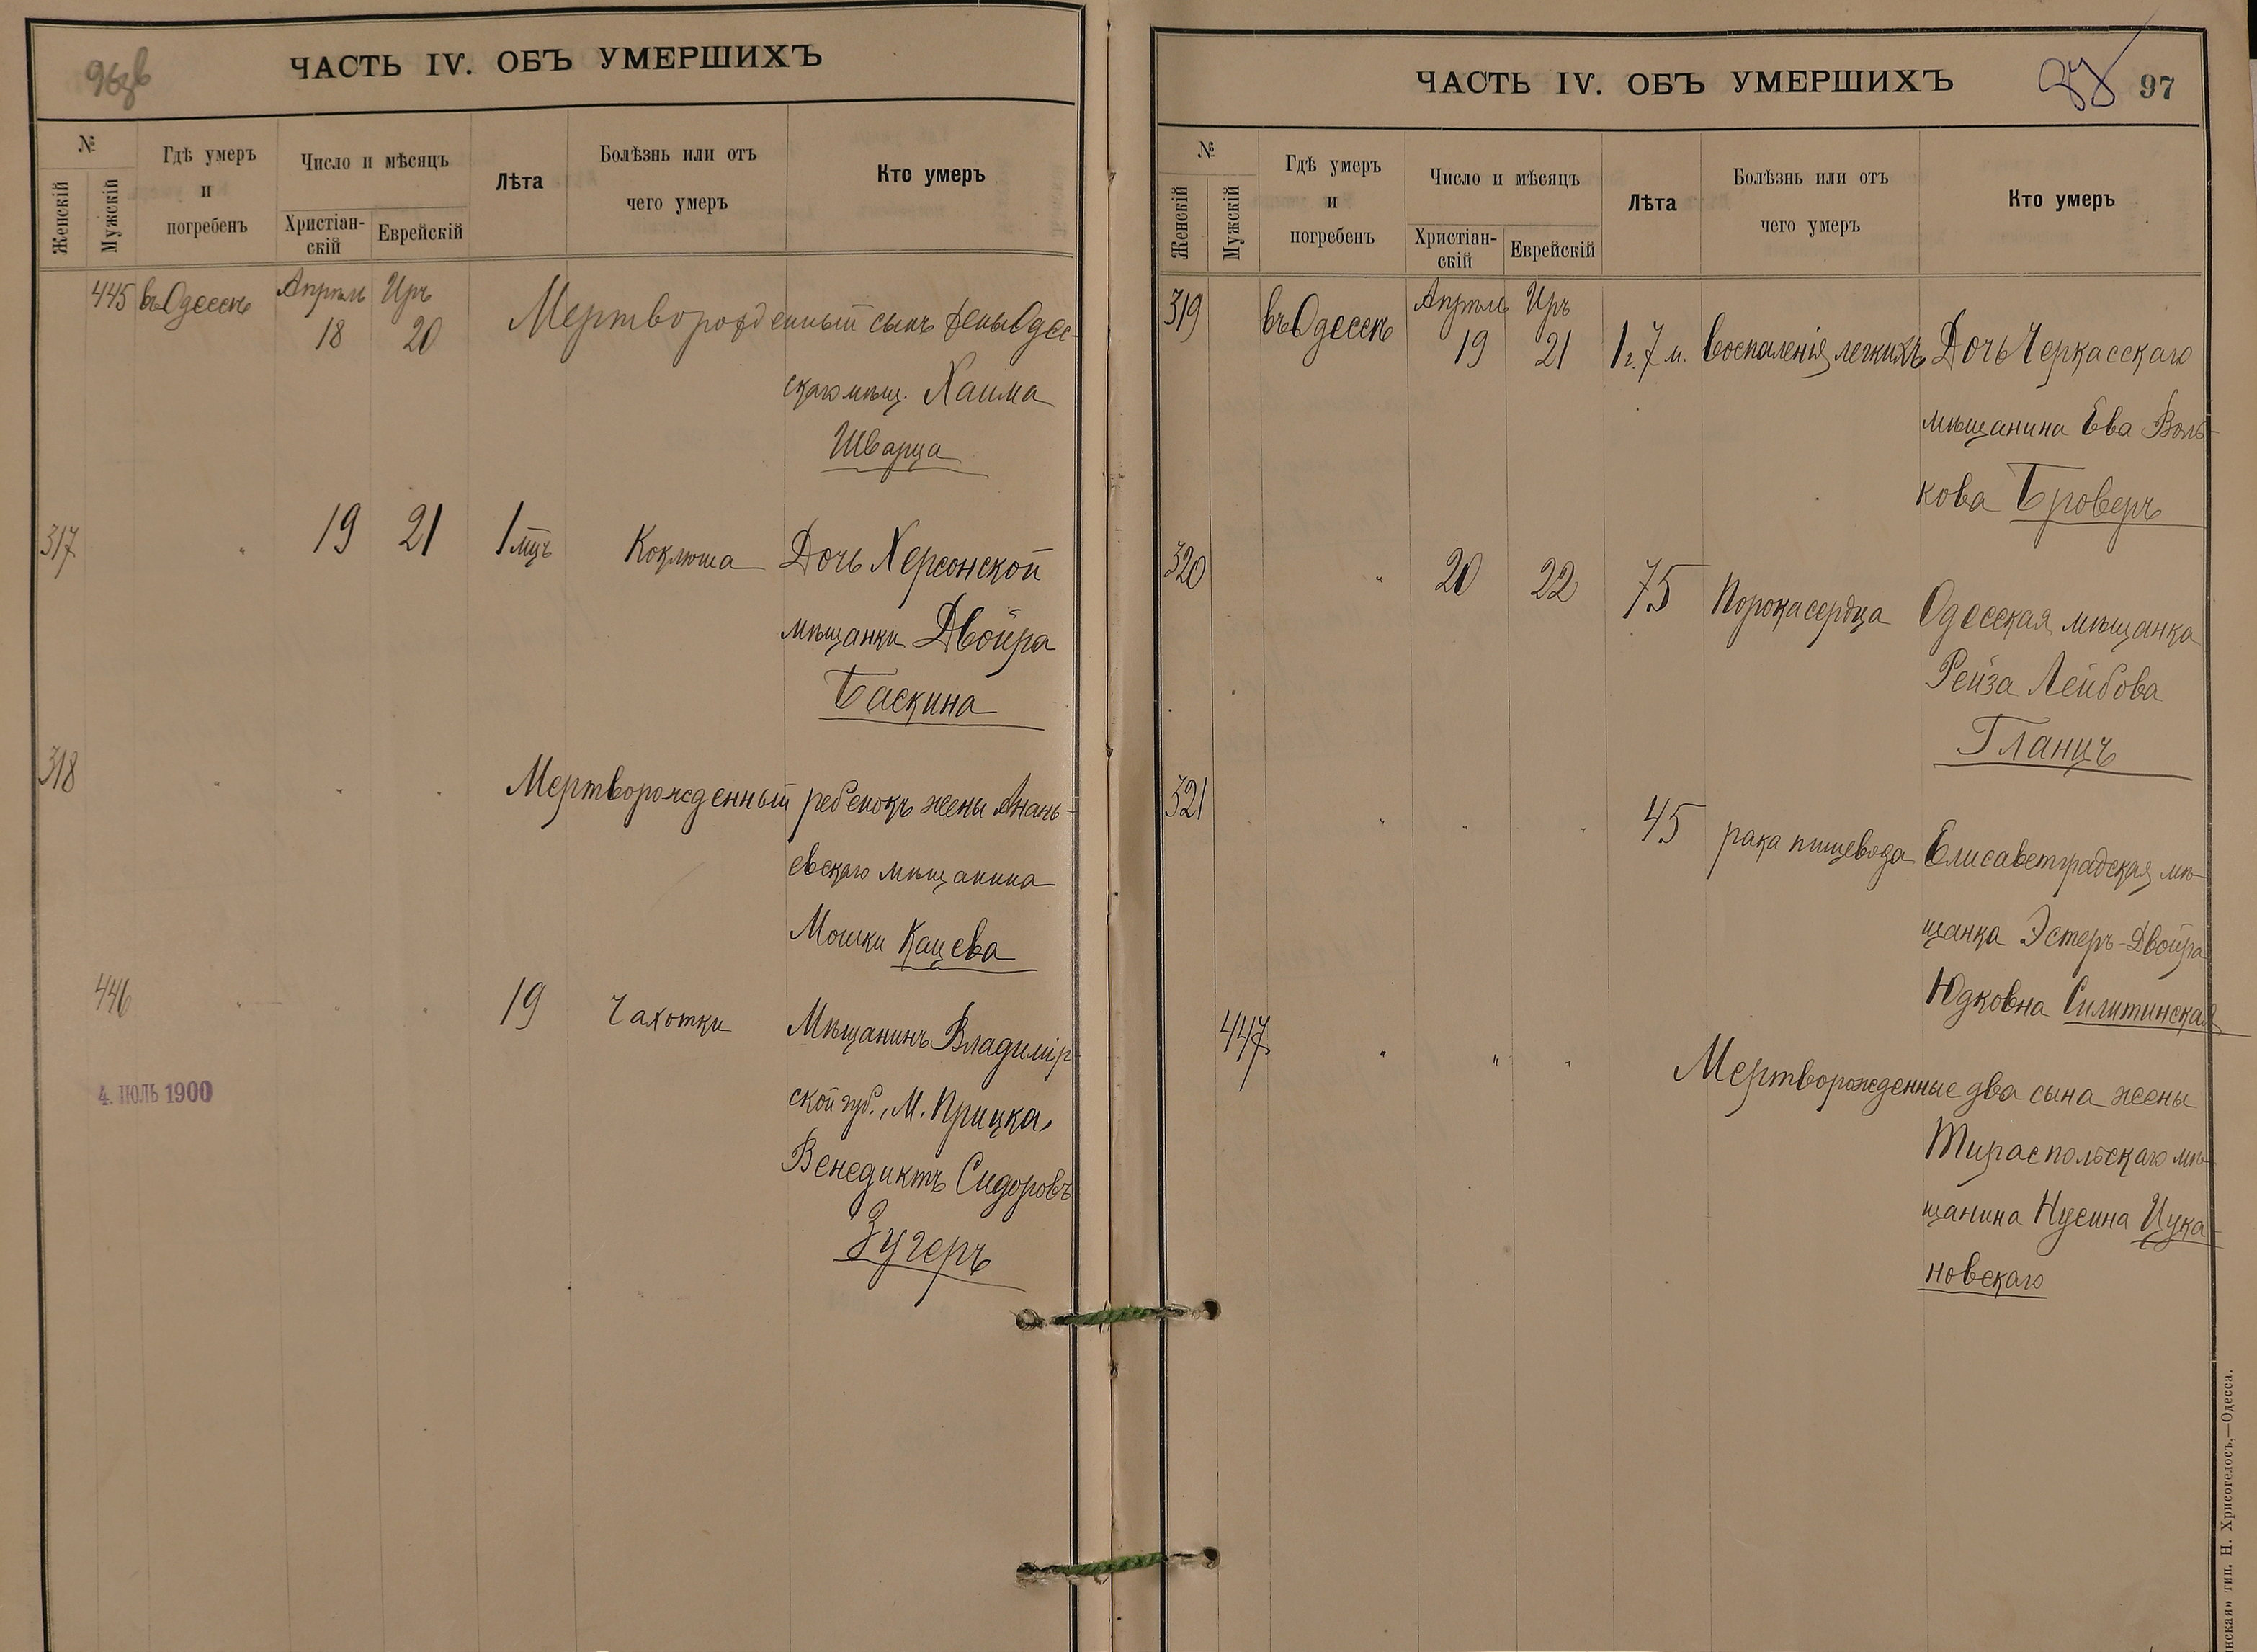 96зв
ЧАСТЬ IV. ОБЪ УМЕРШИХЪ
№
Женскій
Мужскій
Гдѣ умеръ
и
погребенъ
Число и мѣсяцъ
Христіан-
скій
Еврейскій
Лѣта
Болѣзнь или отъ
чего умеръ
Кто умеръ
445 въ Одессѣ Апрѣль Иръ
18 20 Мертворожденный сынъ жены Одес-
скаго мѣщ. Хаима
Шварца
317 " 19 21 1 мцъ Коклюша Дочь Херсонской
мѣщанки Двойра
Баскина
318 " " " Мертворожденный ребенокъ жены Анань-
евскаго мѣщанина
Мошки Кацева
446 " " " 19 Чахотки Мѣщанинъ Владимір-
ской губ., М. Прицка,
Венедиктъ Сидоровъ
Зугеръ
4. ІЮЛЬ 1900
ЧАСТЬ IV. ОБЪ УМЕРШИХЪ
97
№
Женскій
Мужскій
Гдѣ умеръ
и
погребенъ
Число и мѣсяцъ
Христіан-
скій
Еврейскій
Лѣта
Болѣзнь или отъ
чего умеръ
Кто умеръ
319 въ Одессѣ Апрѣль Иръ
19 21 1 г. 7 м. Воспаленія легкихъ Дочь Черкасскаго
мѣщанина Ева Воль-
кова Броверъ
320 " 20 22 75 Порока сердца Одесская мѣщанка
Рейза Лейбова
Гланцъ
321 " " " 45 рака пищевода Елисаветградская мѣ-
щанка Эстеръ-Двойра
Юдковна Силитинская
447 " " " Мертворожденные два сына жены
Тираспольскаго мѣ-
щанина Нусина Цука-
новскаго
нская» тип. Н. Хрисогелосъ,—Одесса.